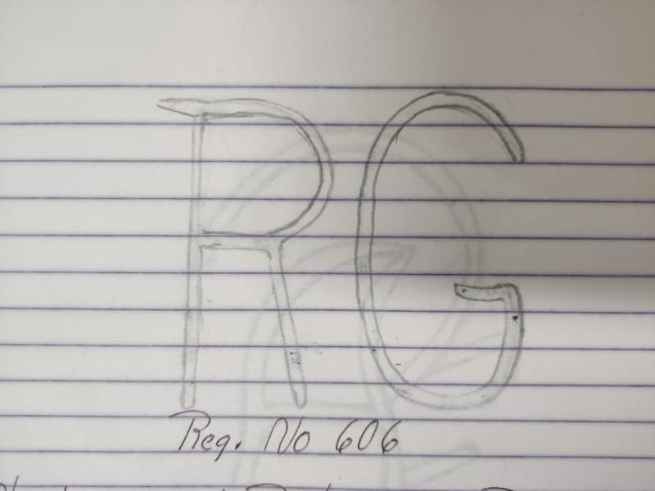 RG
Reg. No 606